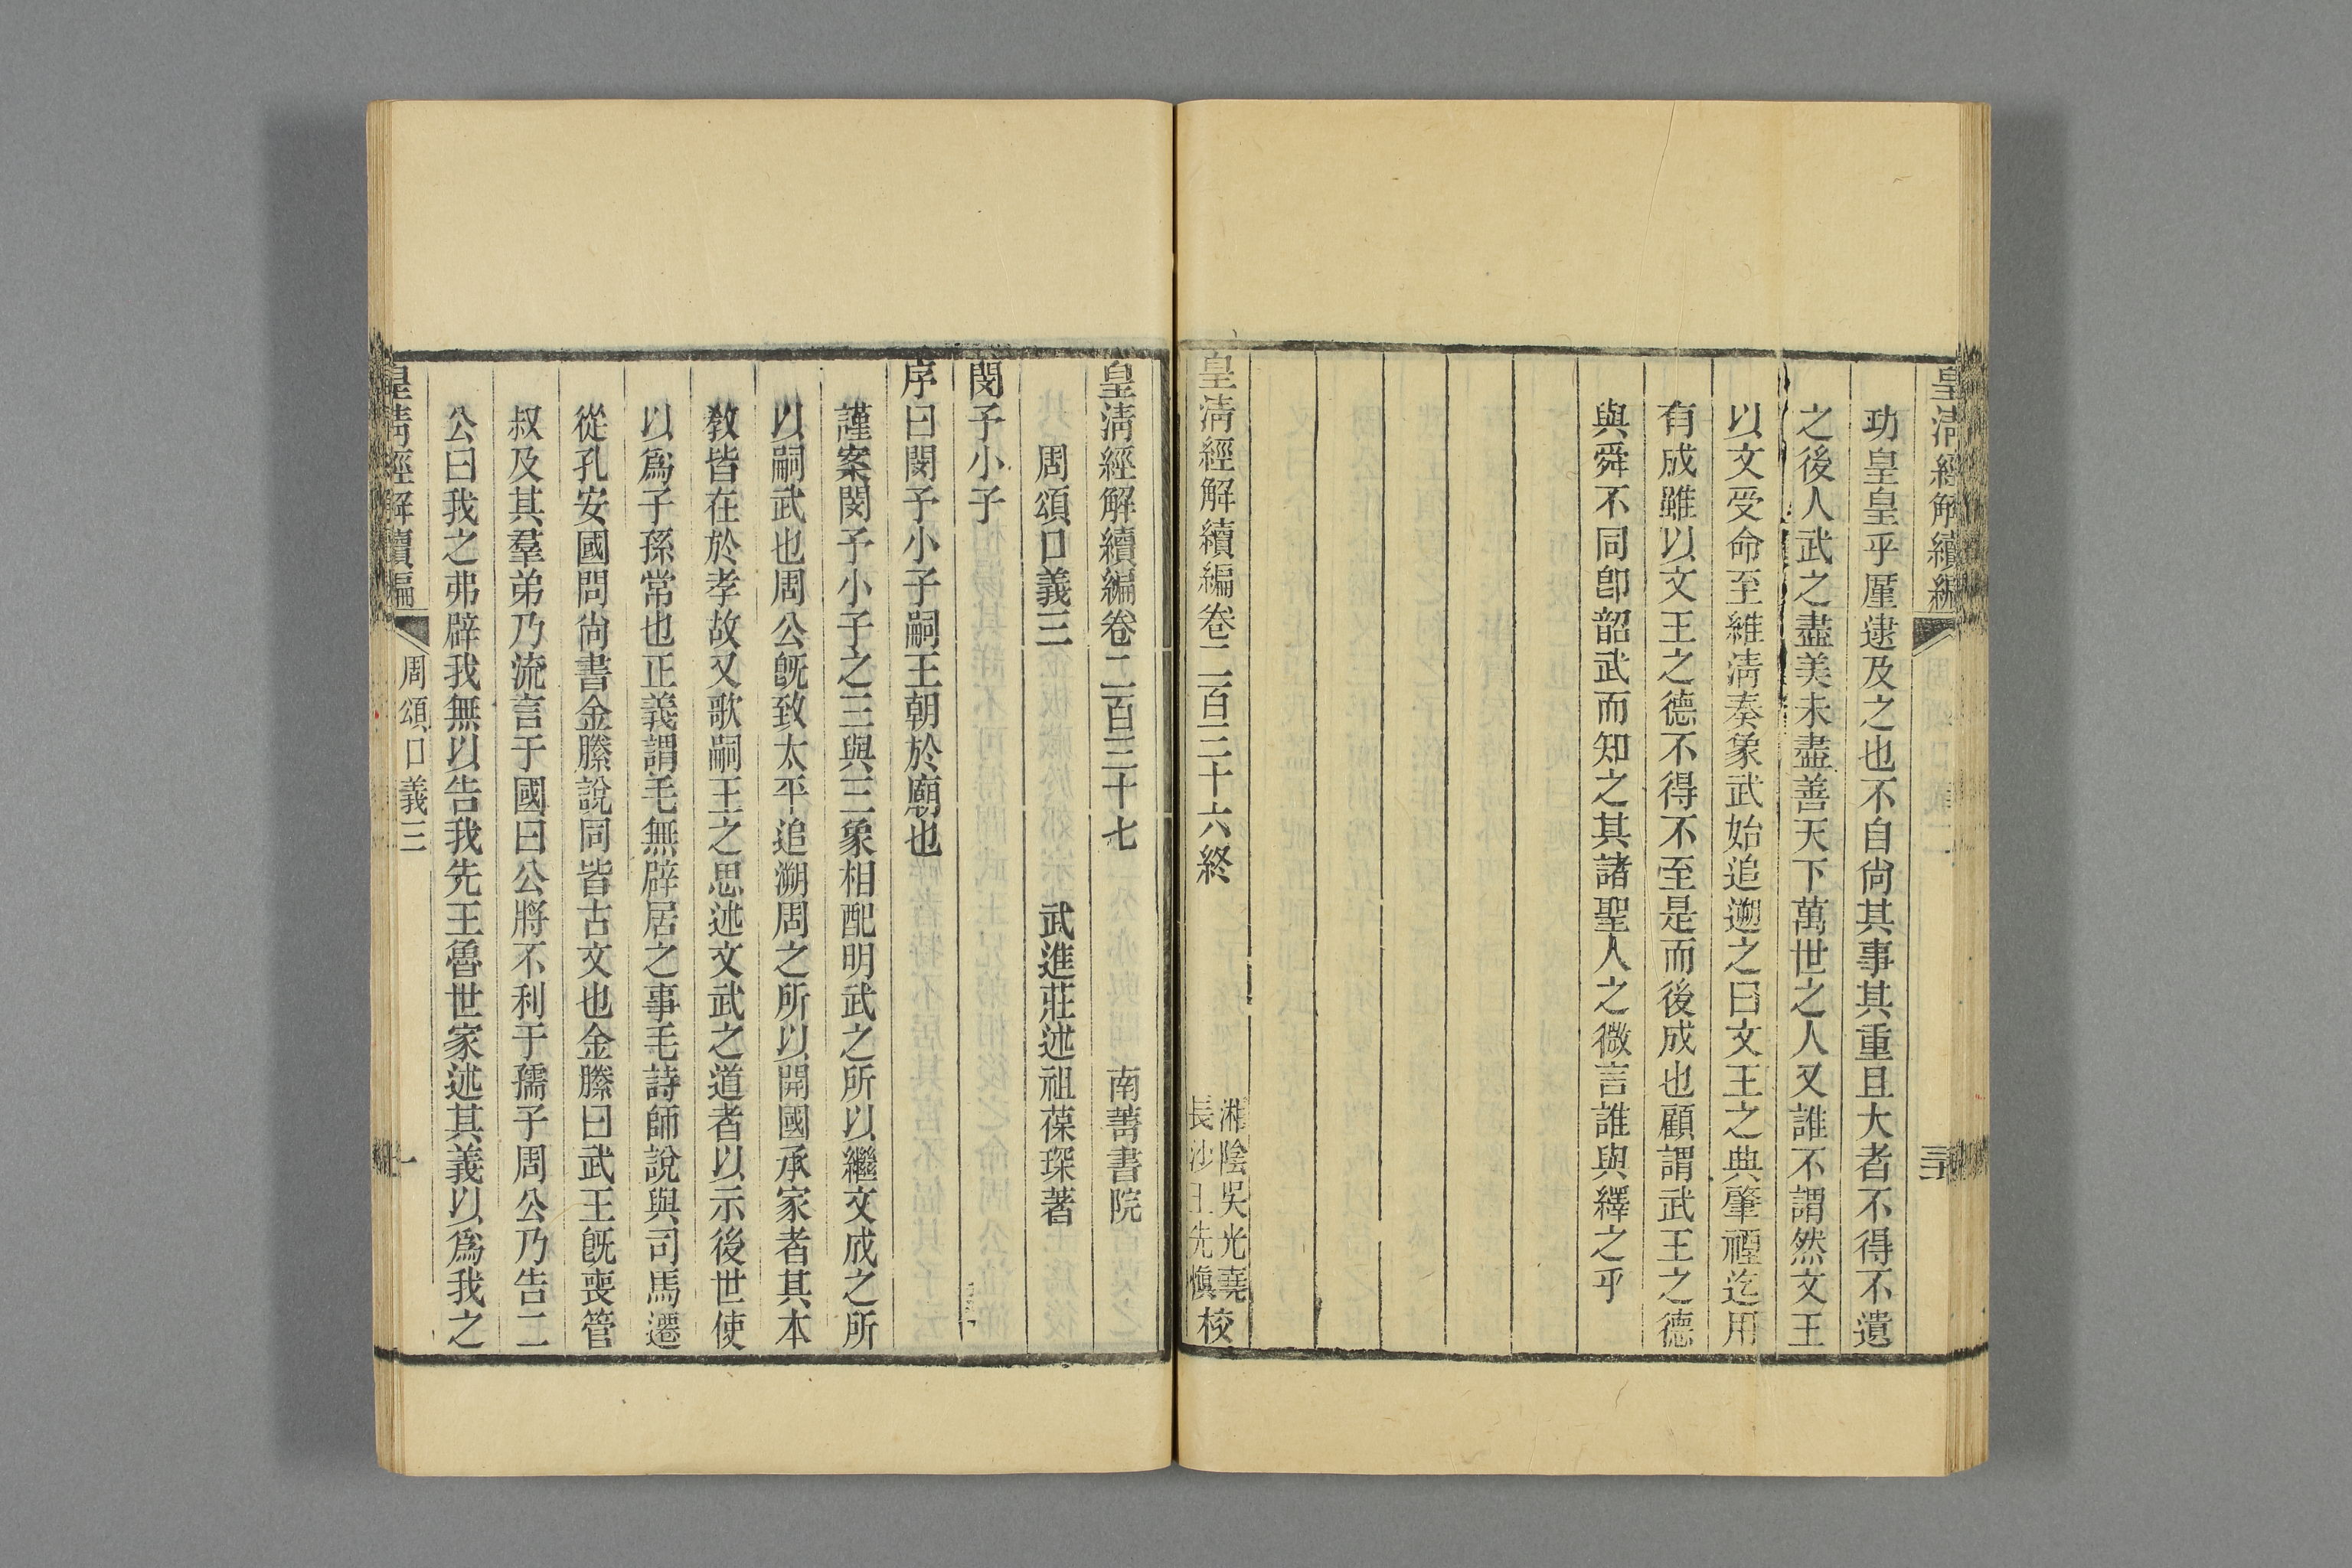 皇清經解續編
功皇皇乎厪逮及之也不自尙其事其重且大者不得不遺
之後人武之盡美未盡善天下萬世之人又誰不謂然文王
以文受命至維淸奏象武始追遡之曰文王之典肇禋迄用
有成雖以文王之德不得不至是而後成也顧謂武王之德
與舜不同卽韶武而知之其諸聖人之微言誰與繹之乎
皇淸經解續編卷二百三十六終
湘陰吳光堯
長沙王先愼
校
皇淸經解續編卷二百三十七
南菁書院
周頌口義三
武進莊述祖葆琛著
閔予小子
序曰閔予小子嗣王朝於廟也
謹案閔予小子之三與三象相配明武之所以繼文成之所
以嗣武也周公旣致太平追溯周之所以開國承家者其本
敎皆在於孝故又歌嗣王之思述文武之道者以示後世使
以爲子孫常也正義謂毛無辟居之事毛詩師說與司馬遷
從孔安國問尙書金縢說同皆古文也金縢曰武王旣喪管
叔及其羣弟乃流言于國曰公將不利于孺子周公乃告二
公曰我之弗辟我無以告我先王魯世家述其義以爲我之
皇淸經解續編
周頌口義三
一